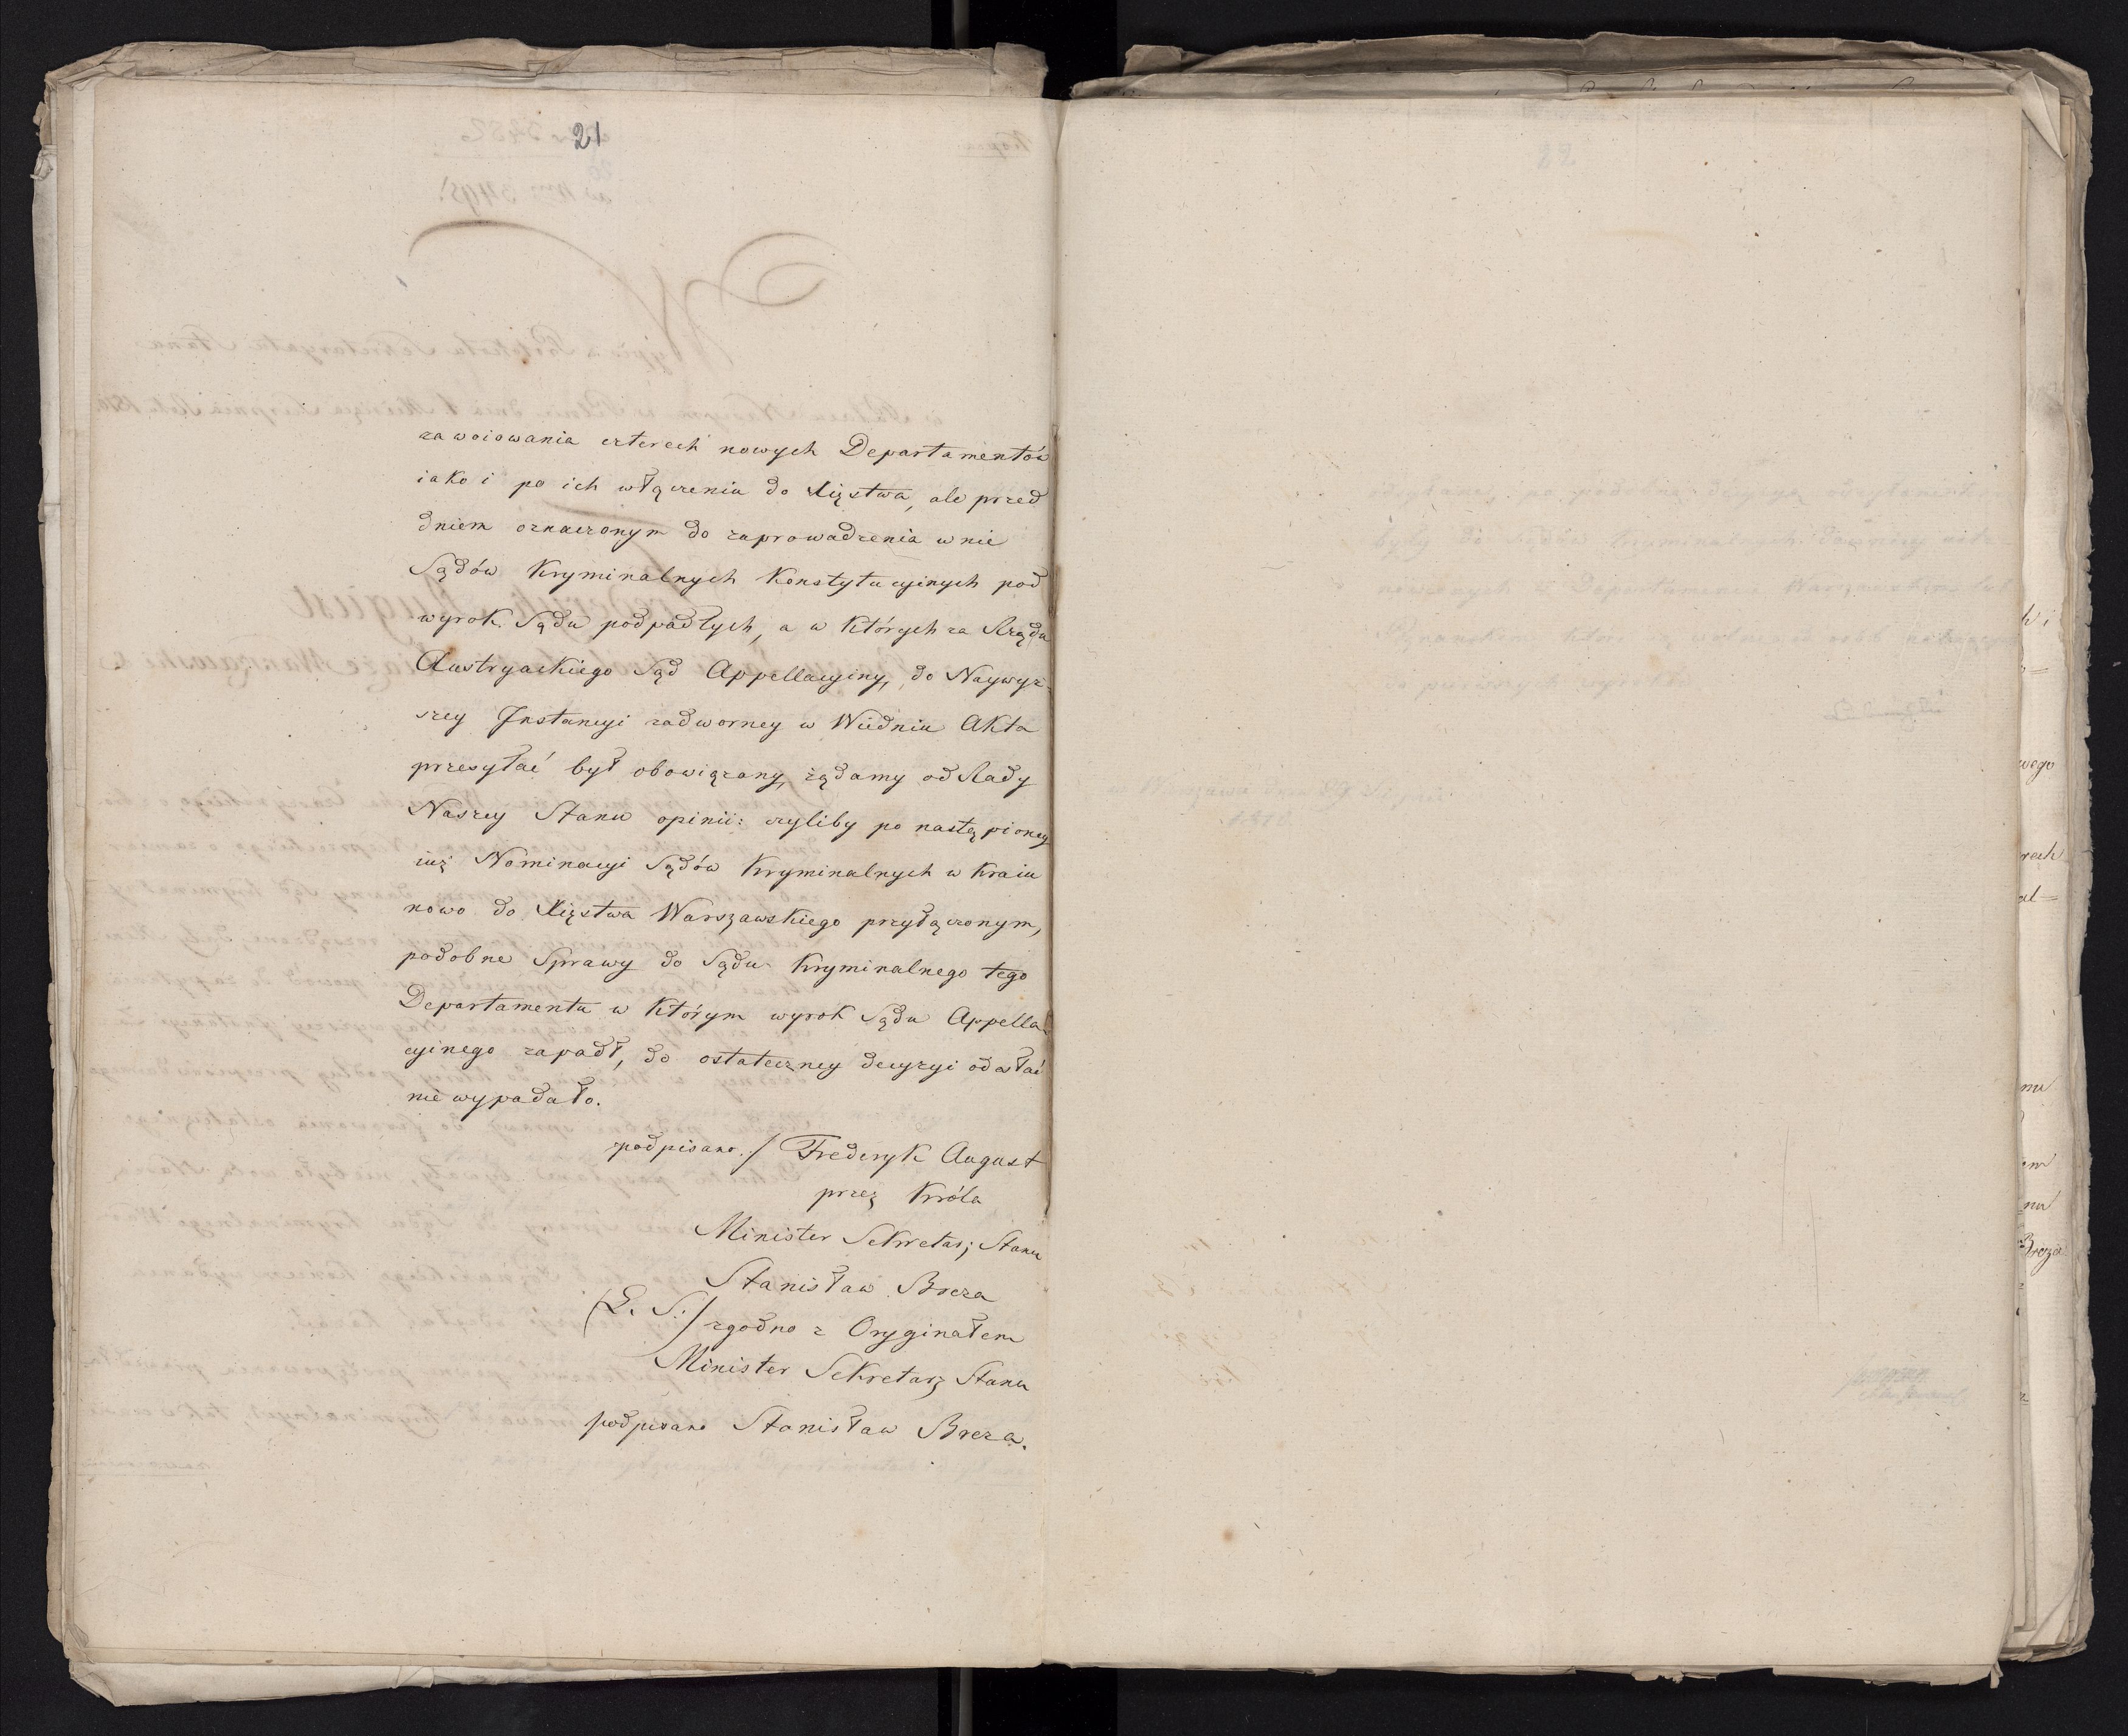 21
zawoiowania czterech nowych Departamentów
iako i po ich włączeniu do Xięstwa, ale przed
dniem oznaczonym do zaprowadzenia w nie
Sądów Kryminalnych Konstytucyinych pod
wyrok Sądu podpadłych, a w których za Rządu
Austryackiego Sąd Appellacyiny, do Naywyż-
szey Instancyi nadworney w Wiedniu Akta
przesyłać był obowiązany, żądamy od Rady
Naszey Stanu opinii: czyliby po nastąpioney
iuż Nominacyi Sądów Kryminalnych w kraiu
nowo do Xięstwa Warszawskiego przyłączonym,
podobne Sprawy do Sądu Kryminalnego tego
Departamentu w którym wyrok Sądu Appella-
cyinego zapadł, do ostateczney decyzyi odesłać
nie wypadało.
podpisano./ Frederyk August
przez Króla
Minister Sekretarz Stanu
Stanisław Breza
(L. S.)
zgodno z Oryginałem
Minister Sekretarz Stanu
podpisano Stanisław Breza.